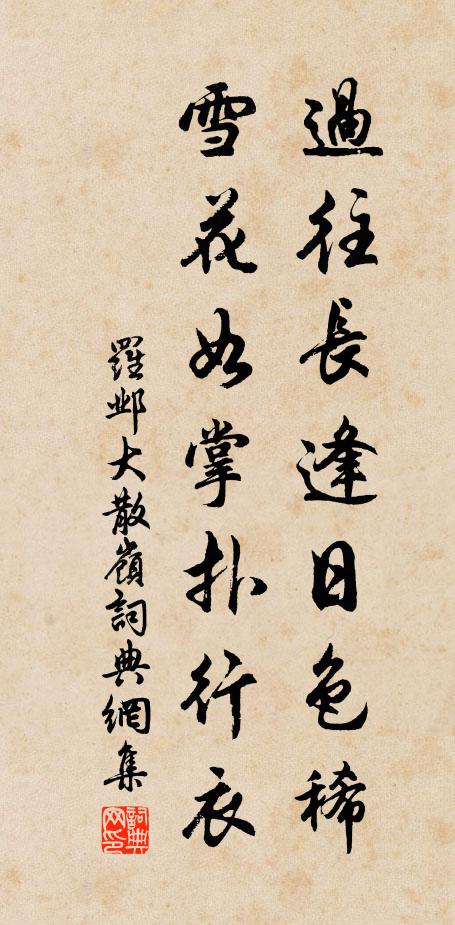 過往長逢日色稀
雪花如掌扑行衣
羅邺大散嶺詞典網集
詞典网印